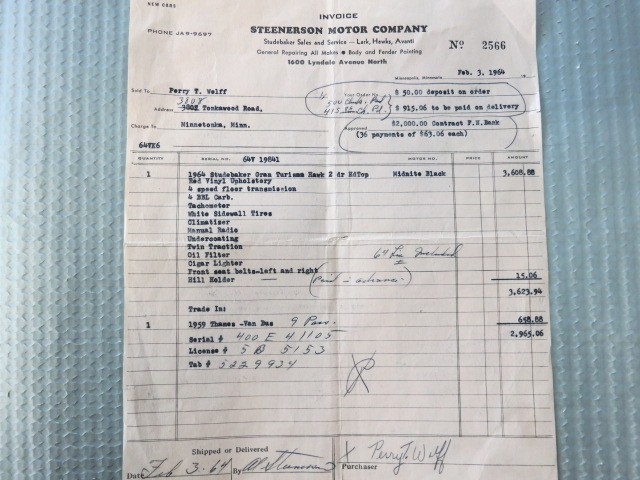 NEW CARS
INVOICE
PHONE JA9-9697
STEENERSON MOTOR COMPANY
Studebaker Sales and Service — Lark, Hawks, Avanti
General Repairing All Makes • Body and Fender Painting
1600 Lyndale Avenue North
No 2566
Minneapolis, Minnesota, Feb. 3, 1964 19
Sold To Perry T. Wolff
Your Order No. $ 50.00 deposit on order
3808
Address Tonkawood Road,
$ 915.06 to be paid on delivery
Charge To Minnetonka, Minn.
Approved $2,000.00 Contract F.N.Bank
(36 payments of $63.06 each)
64VK6
QUANTITY SERIAL NO. 64V 19841 MOTOR NO. PRICE AMOUNT
1 1964 Studebaker Gran Turismo Hawk 2 dr HdTop Midnite Black 3,608.88
Red Vinyl Upholstery
4 speed floor transmission
4 BBL Carb.
Tachometer
White Sidewall Tires
Climatizer
Manual Radio
Undercoating
Twin Traction
Oil Filter
64 Lic Included
Cigar Lighter
Front seat belts-left and right
Hill Holder (Paid in advance) 15.06
3,623.94
Trade In:
1 1959 Thames -Van Bus 9 Pass. 658.88
2,965.06
Serial # 400 E 41105
License # 5 B 5153
Tab # 5229934
Shipped or Delivered
Date Feb 3-64 By Al Steenerson
X Perry T. Wolff
Purchaser